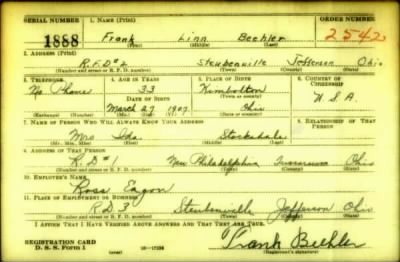 SERIAL NUMBER 1. NAME (Print) ORDER NUMBER
1888 Frank Linn Beehler 2542
(First) (Middle) (Last)
2. ADDRESS (Print)
R.F.D #2 Steubenville Jefferson Ohio
(Number and street or R. F. D. number) (Town) (County) (State)
3. TELEPHONE 4. AGE IN YEARS 5. PLACE OF BIRTH 6. COUNTRY OF CITIZENSHIP
No Phone 33 Kimbolton
DATE OF BIRTH (Town or county)
March 27 1907 Ohio U.S.A.
(Exchange) (Number) (Mo.) (Day) (Yr.) (State or country)
7. NAME OF PERSON WHO WILL ALWAYS KNOW YOUR ADDRESS 8. RELATIONSHIP OF THAT PERSON
Mrs Ida Stockdale
(Mr., Mrs., Miss) (First) (Middle) (Last)
9. ADDRESS OF THAT PERSON
R.D #1 New Philadelphia Tuscarawas Ohio
(Number and street or R. F. D. number) (Town) (County) (State)
10. EMPLOYER'S NAME
Ross Eagon
11. PLACE OF EMPLOYMENT OR BUSINESS
R.D 3 Steubenville Jefferson Ohio
(Number and street or R. F. D. number) (Town) (County) (State)
I AFFIRM THAT I HAVE VERIFIED ABOVE ANSWERS AND THAT THEY ARE TRUE.
REGISTRATION CARD
D. S. S. Form 1
Frank Beehler
(Registrant's signature)